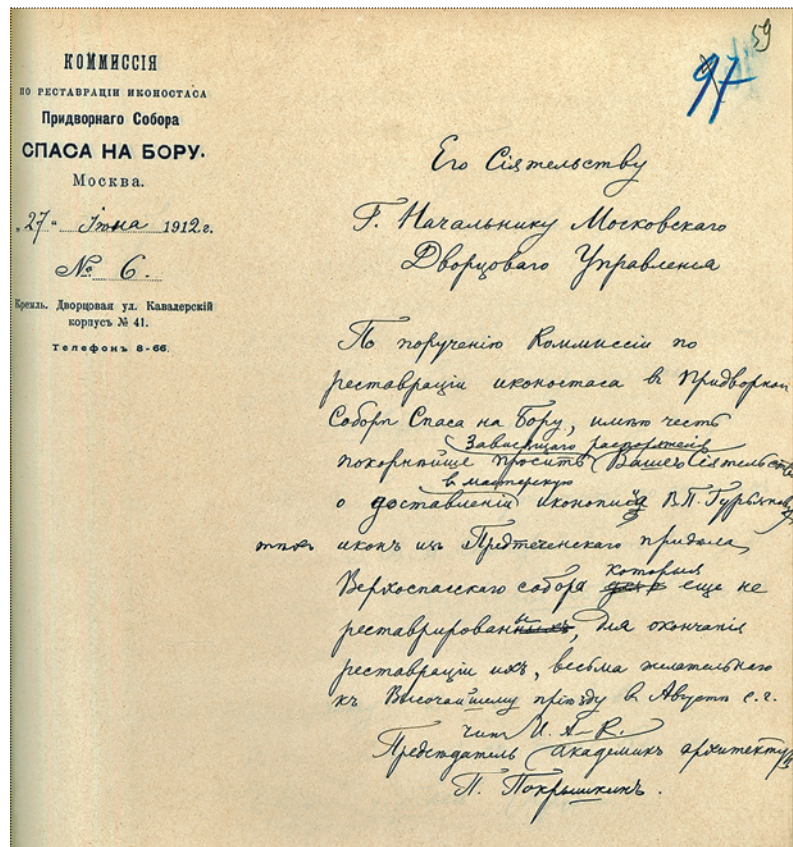 КОММИССІЯ
ПО РЕСТАВРАЦІИ ИКОНОСТАСА
Придворнаго Собора
СПАСА НА БОРУ.
Москва.
„27“ Іюня 1912 г.
№ 6.
Кремль. Дворцовая ул. Кавалерскій
корпусъ № 41.
Телефонъ 8-66.
59
97
Его Сіятельству
Г. Начальнику Московскаго
Дворцоваго Управленія
По порученію Коммиссіи по
реставраціи иконостаса в Придворном
Соборѣ Спаса на Бору, имѣю честь
Зависящаго распоряженія
покорнѣйше просить Вашего Сіятельства
в мастерскую
о доставленіи иконописца В. П. Гурьянова
тѣхъ иконъ изъ Предтеченскаго придѣла
которыя
Верхоспасскаго собора еще не
реставрированы, для окончанія
реставраціи ихъ, весьма желательнаго
къ Высочайшему пріѣзду в Августѣ с. г.
член И. А. К.
Предсѣдатель академикъ архитектуры
П. Покрышкинъ.